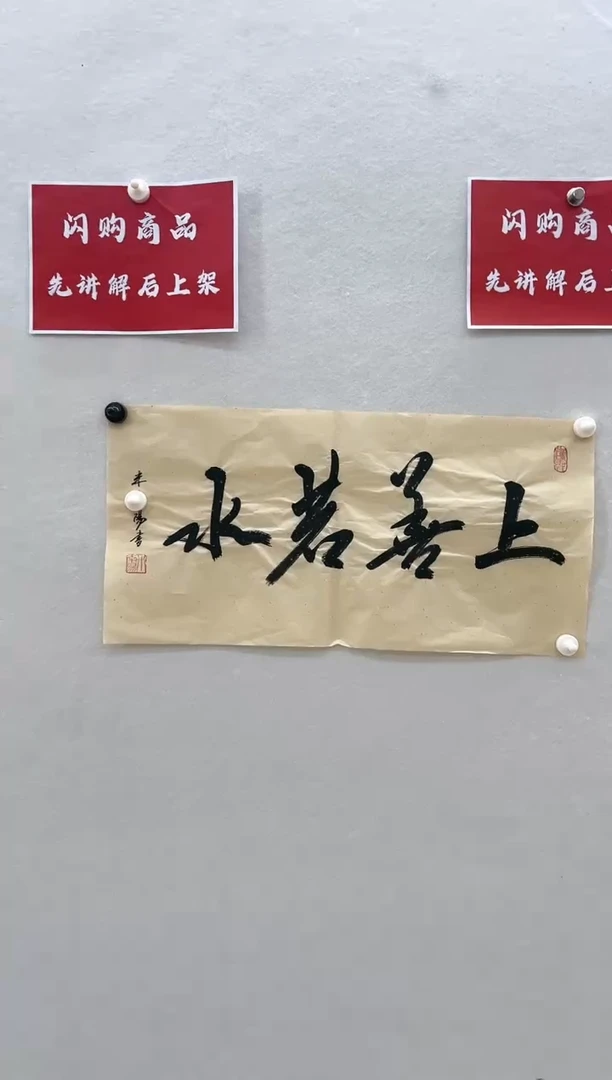 闪购商品
先讲解后上架
闪购商
先讲解后上
上善若水